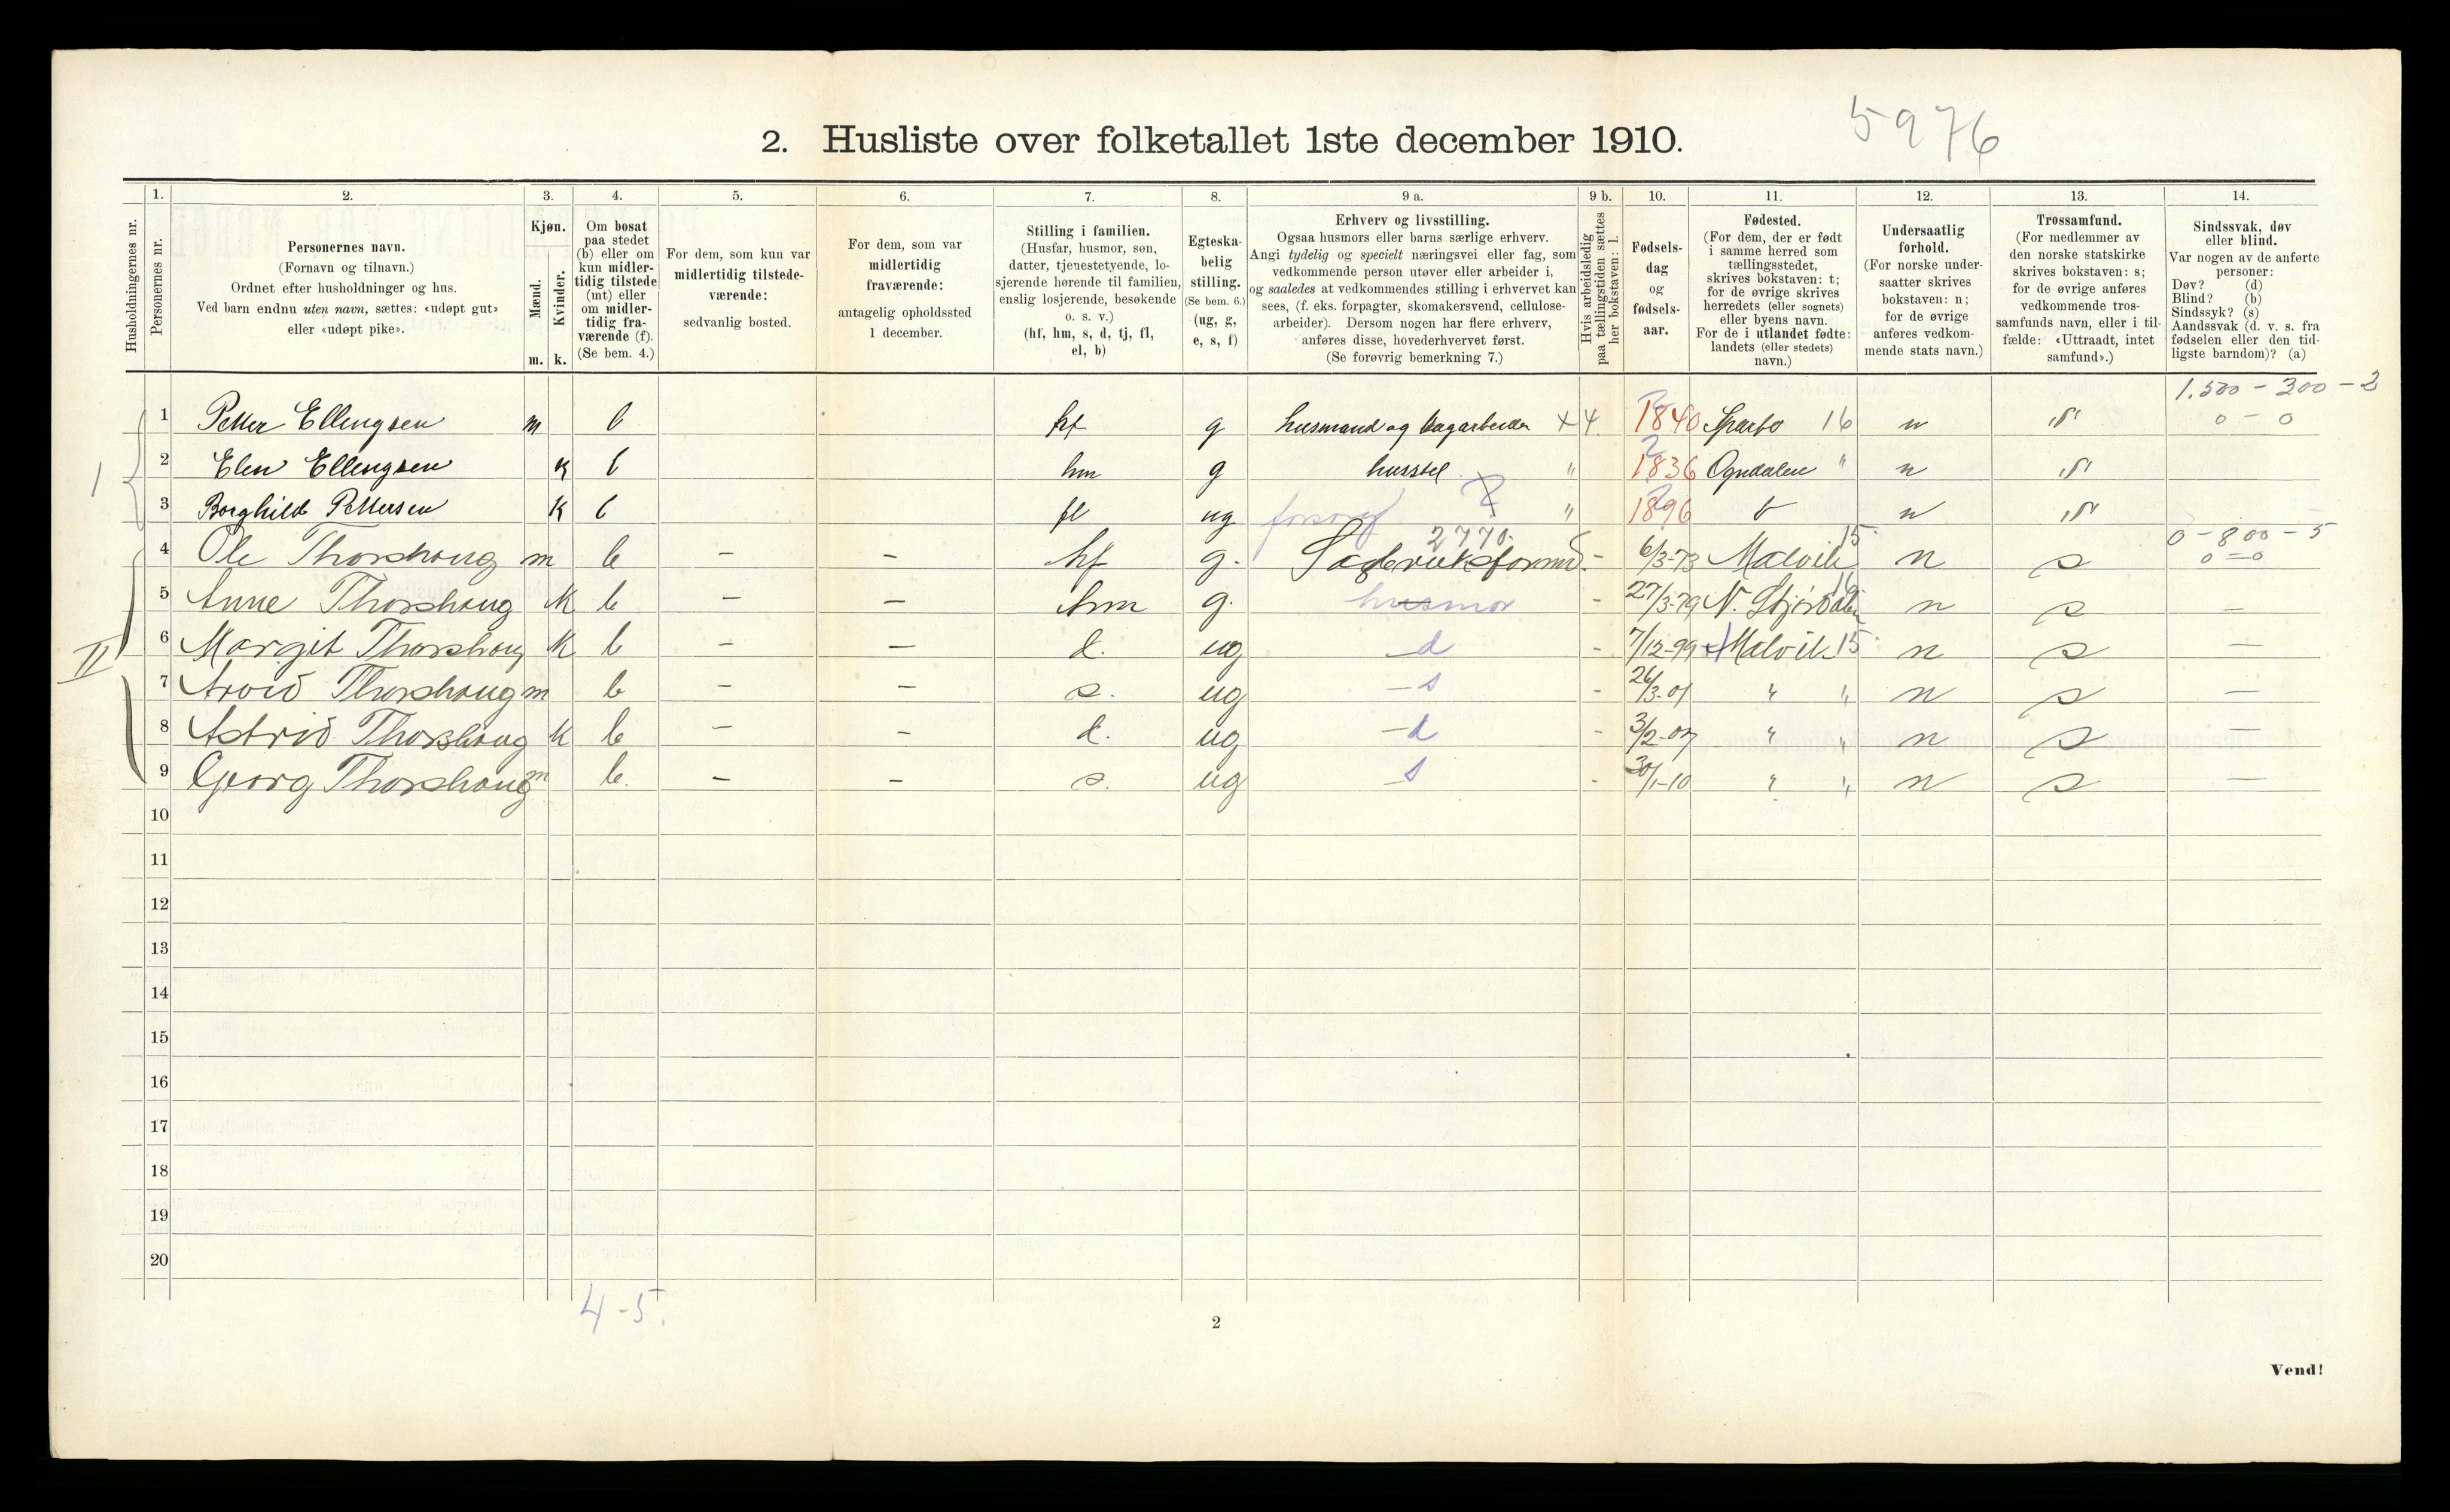 5976
2. Husliste over folketallet 1ste december 1910.
1. 2. 3. 4. 5. 6. 7. 8. 9 a. 9 b. 10. 11. 12. 13. 14.
Husholdningernes nr.
Personernes nr.
Personernes navn.
(Fornavn og tilnavn.)
Ordnet efter husholdninger og hus.
Ved barn endnu uten navn, sættes: «udøpt gut»
eller «udøpt pike».
Kjøn.
Mænd.
Kvinder.
m. k.
Om bosat
paa stedet
(b) eller om
kun midler-
tidig tilstede
(mt) eller
om midler-
tidig fra-
værende (f).
(Se bem. 4.)
For dem, som kun var
midlertidig tilstede-
værende:
sedvanlig bosted.
For dem, som var
midlertidig
fraværende:
antagelig opholdssted
1 december.
Stilling i familien.
(Husfar, husmor, søn,
datter, tjenestetyende, lo-
sjerende hørende til familien,
enslig losjerende, besøkende
o. s. v.)
(hf, hm, s, d, tj, fl,
el, b)
Egteska-
belig
stilling.
(Se bem. 6.)
(ug, g,
e, s, f)
Erhverv og livsstilling.
Ogsaa husmors eller barns særlige erhverv.
Angi tydelig og specielt næringsvei eller fag, som
vedkommende person utøver eller arbeider i,
og saaledes at vedkommendes stilling i erhvervet kan
sees, (f. eks. forpagter, skomakersvend, cellulose-
arbeider). Dersom nogen har flere erhverv,
anføres disse, hovederhvervet først.
(Se forøvrig bemerkning 7.)
Hvis arbeidsledig
paa tællingstiden sættes
her bokstaven: l.
Fødsels-
dag
og
fødsels-
aar.
Fødested.
(For dem, der er født
i samme herred som
tællingsstedet,
skrives bokstaven: t;
for de øvrige skrives
herredets (eller sognets)
eller byens navn.
For de i utlandet fødte:
landets (eller stedets)
navn.)
Undersaatlig
forhold.
(For norske under-
saatter skrives
bokstaven: n;
for de øvrige
anføres vedkom-
mende stats navn.)
Trossamfund.
(For medlemmer av
den norske statskirke
skrives bokstaven: s;
for de øvrige anføres
vedkommende tros-
samfunds navn, eller i til-
fælde: «Uttraadt, intet
samfund».)
Sindssvak, døv
eller blind.
Var nogen av de anførte
personer:
Døv? (d)
Blind? (b)
Sindssyk? (s)
Aandssvak (d. v. s. fra
fødselen eller den tid-
ligste barndom)? (a)
1.500 - 300 - 2
1 Petter Ellingsen m b hf g husmand og dagarbeider x 4 1840 Sparbo 16 n "s" 0 - 0
I 2 Elen Ellingsen k b hm g husstel " 1836 Ogndalen " n "s"
3 Borghild Pettersen k b fl ug forsørg " 1896 t n "s"
2770. 15 0 - 800 - 5
4 Ole Thorshaug m b - - hf g. Sagbruksformd. - 6/3-73 Malvik n s 0 = 0
5 Anne Thorshaug k b - - hm g. husmor - 27/3-79 N. Stjørdalen 16 n s -
II 6 Margit Thorshaug k b - - d. ug - d - 7/12-99 Malvik 15 n s -
7 Arvid Thorshaug m b - - s. ug - s - 26/3-01 " " n s -
8 Astrid Thorshaug k b - - d. ug - d - 3/2-07 " " n s -
9 Georg Thorshaug m b. - - s. ug - s - 30/1-10 " " n s -
10
11
12
13
14
15
16
17
18
19
20
4 - 5.
2
Vend!